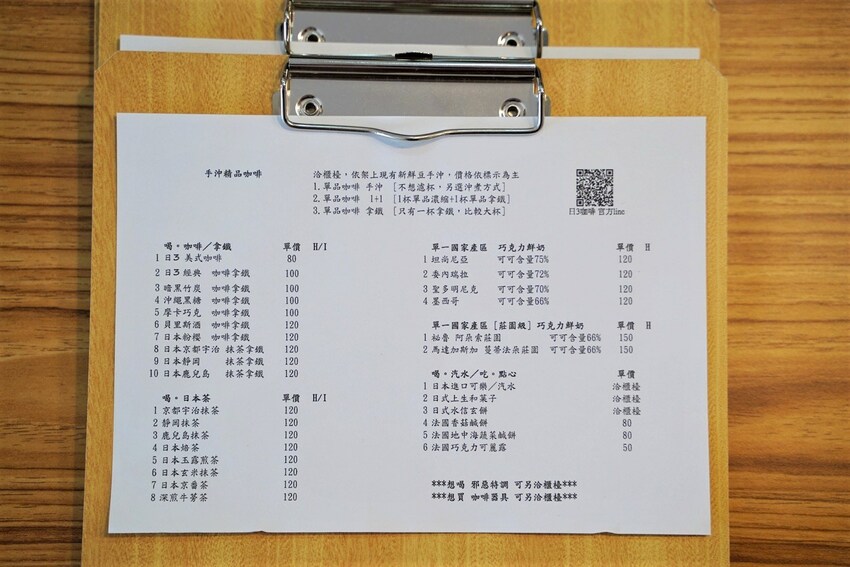 手沖精品咖啡
洽櫃檯，依架上現有新鮮豆手沖，價格依標示為主
1.單品咖啡 手沖 [不想濾杯，另選沖煮方式]
2.單品咖啡 1+1 [1杯單品濃縮+1杯單品拿鐵]
3.單品咖啡 拿鐵 [只有一杯拿鐵，比較大杯]
日3咖啡 官方line
喝。咖啡／拿鐵 單價 H/I
1 日3 美式咖啡 80
2 日3 經典 咖啡拿鐵 100
3 暗黑竹炭 咖啡拿鐵 100
4 沖繩黑糖 咖啡拿鐵 100
5 摩卡巧克 咖啡拿鐵 100
6 貝里斯酒 咖啡拿鐵 120
7 日本粉櫻 咖啡拿鐵 120
8 日本京都宇治 抹茶拿鐵 120
9 日本靜岡 抹茶拿鐵 120
10 日本鹿兒島 抹茶拿鐵 120
喝。日本茶 單價 H/I
1 京都宇治抹茶 120
2 靜岡抹茶 120
3 鹿兒島抹茶 120
4 日本焙茶 120
5 日本玉露煎茶 120
6 日本玄米抹茶 120
7 日本京番茶 120
8 深煎牛蒡茶 120
單一國家產區 巧克力鮮奶 單價 H
1 坦尚尼亞 可可含量75% 120
2 委內瑞拉 可可含量72% 120
3 聖多明尼克 可可含量70% 120
4 墨西哥 可可含量66% 120
單一國家產區 [莊園級] 巧克力鮮奶 單價 H
1 秘魯 阿朵索莊園 可可含量66% 150
2 馬達加斯加 蔓蒂法朵莊園 可可含量66% 150
喝。汽水／吃。點心 單價
1 日本進口可樂／汽水 洽櫃檯
2 日式上生和菓子 洽櫃檯
3 日式水信玄餅 洽櫃檯
4 法國香菇鹹餅 80
5 法國地中海蔬菜鹹餅 80
6 法國巧克力可麗露 50
***想喝 邪惡特調 可另洽櫃檯***
***想買 咖啡器具 可另洽櫃檯***